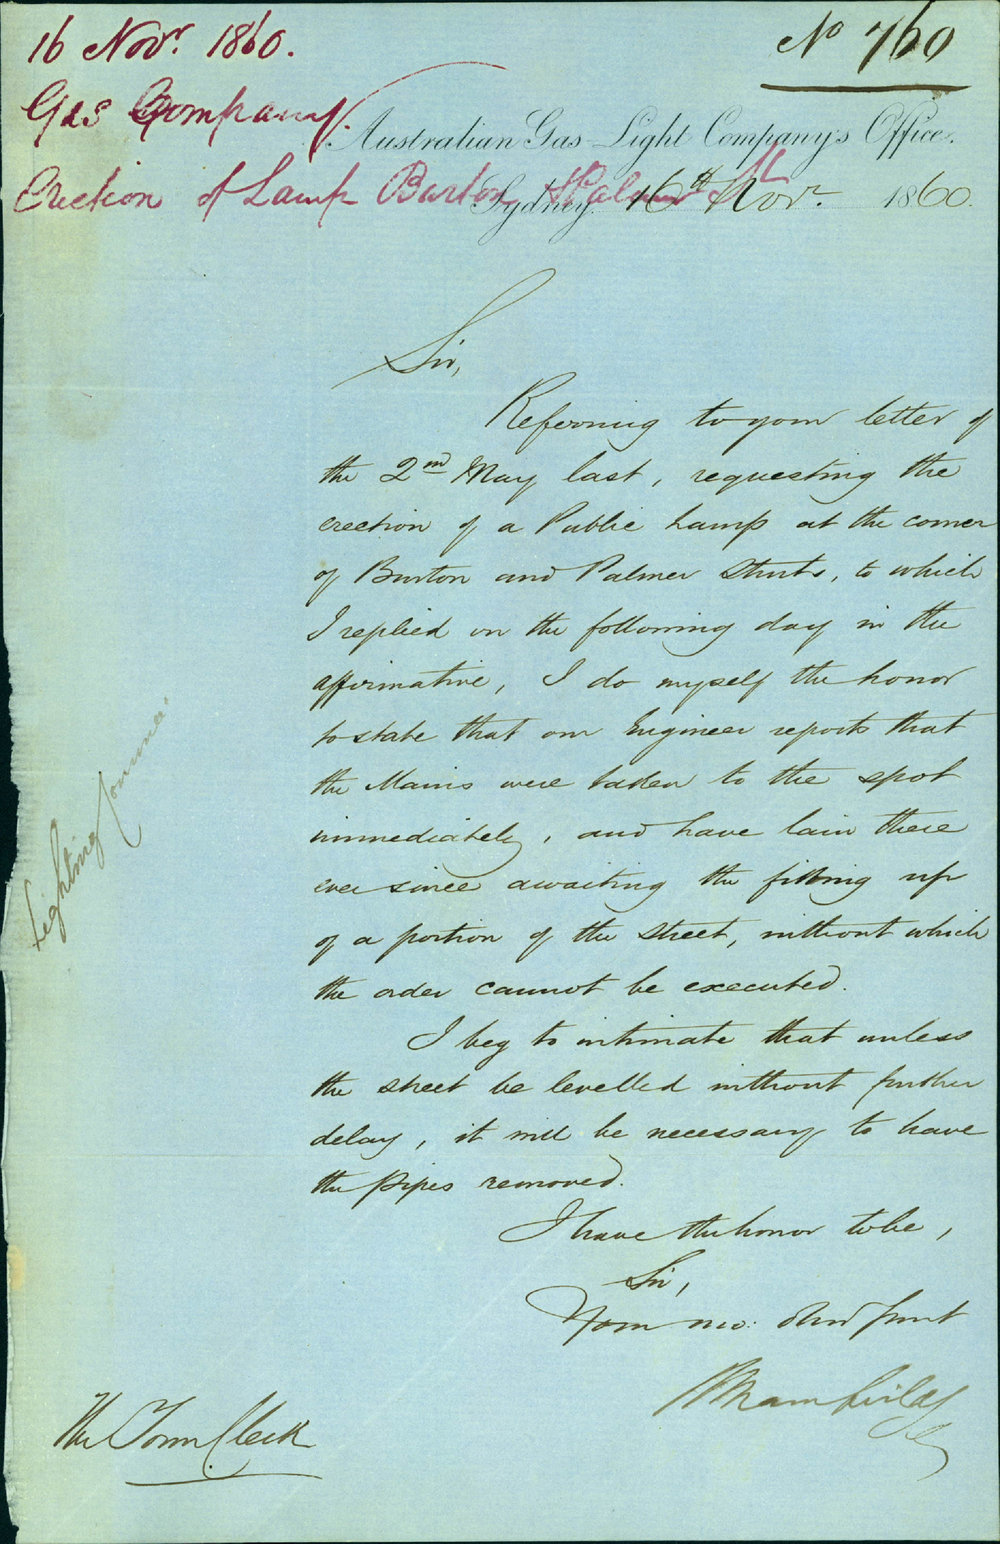 16 Novr. 1860.
No 760
Gas Company.
Australian Gas Light Company's Office.
Erection of Lamp Burton & Palmer St
Sydney 16th Novr. 1860.
Sir,
Referring to your letter of
the 2nd May last, requesting the
erection of a Public Lamp at the corner
of Burton and Palmer Streets, to which
I replied on the following day in the
affirmative, I do myself the honor
to state that our Engineer reports that
the Mains were taken to the spot
immediately, and have lain there
ever since awaiting the filling up
of a portion of the street, without which
the order cannot be executed.
I beg to intimate that unless
the street be levelled without further
delay, it will be necessary to have
the pipes removed.
I have the honor to be,
Sir,
Your mo: obed servt
Mansfield
Secy
The Town Clerk
Lighting Committee